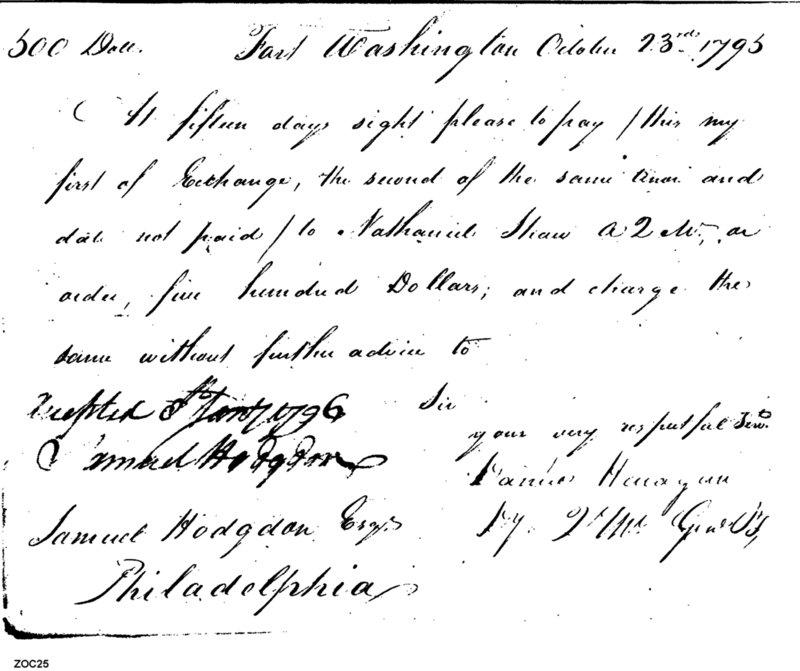 500 Doll. Fort Washington October 23rd 1795
At fifteen days sight please to pay / this my
first of Exchange, the second of the same tenor and
date not paid / to Nathaniel Shaw A 2 M, or
order, five hundred Dollars; and charge the
same without further advice to
Accepted Jany 1796
Samuel Hodgdon
Sir
your very respectful Serv.
Henagan
2 M Genl
Samuel Hodgdon Esqr
Philadelphia
ZOC25